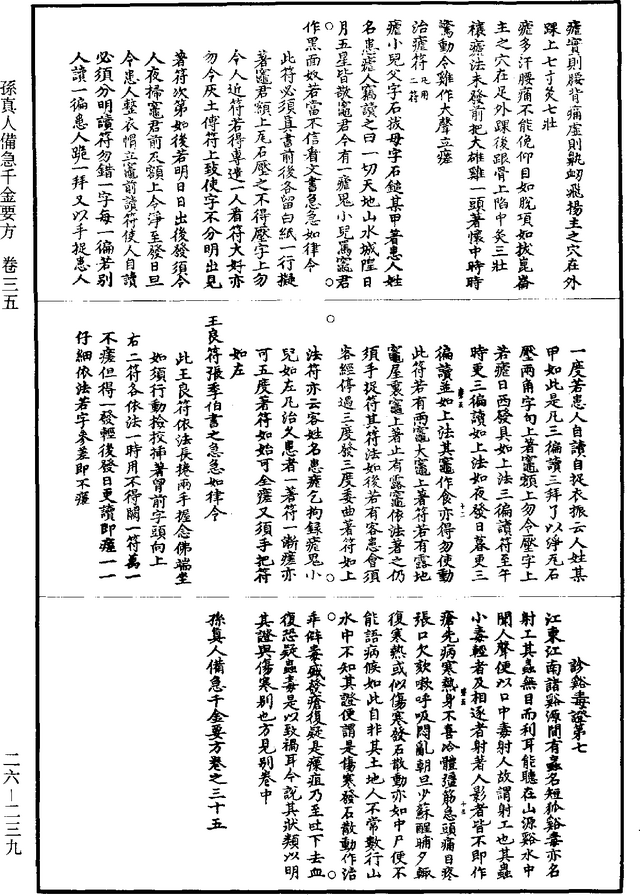 孫真人備急千金要方　卷三五
二六—二三九
瘧實則腰背痛虛則鼽衄飛揚主之穴在外
踝上七寸灸七壯
瘧多汗腰痛不能俛仰目如脫項如拔崑崙
主之穴在足外踝後跟骨上陷中灸三壯
禳瘧法未發前抱大雄雞一頭著懷中時時
驚動令雞作大聲立瘥
治瘧符凡用二符
瘧小兒父字石拔母字石鎚其甲著患人姓
名患瘧人竊讀之曰一切天地山水城隍日
月五星皆敬竈君今有一瘧鬼小兒罵竈君
作黑面奴若當不信看文書急急如律令
此符必須真書前後各留白紙一行擬
著竈君額上瓦石壓之不得壓字上勿
令人近符若得專遣一人看符大好亦
勿令灰土傅符上致使字不分明出見
著符次第如後若明日日出後發須令
人夜掃竈君前及額上令淨至發日旦
令患人整衣帽立竈前讀符使人自讀
必須分明讀符勿錯一字每一徧若別
人讀一徧患人跪一拜又以手捉患人
一度若患人自讀自捉衣振云人姓某
甲如此是凡三徧讀三拜了以淨瓦石
壓兩角字向上著竈額上勿令壓字上
若瘧日西發具如上法三徧讀符至午
時更三徧讀如上法如夜發日暮更三
徧讀並如上法其竈作食亦得勿使動
此符若有兩竈大竈上著符若有露地
竈屋裏竈上著止有露竈依法著之仍
須手捉符其符法如後若有客患會須
客經停過三度發三度委曲著符如上
法符亦云客姓名患瘧乞拘錄瘧鬼小
兒如左凡治久患者一著符一漸瘥亦
可五度著符如始可全瘥又須手把符
如左
王良符張季伯書之急急如律令
此王良符依法長捲兩手握念佛端坐
如須行動撿挍插著胷前字頭向上
右二符各依法一時用不得闕一符萬一
不瘥但得一發輕後發日更讀即瘥一一
仔細依法若字參差即不瘥
診谿毒證第七
江東江南諸谿源間有蟲名短狐谿毒亦名
射工其蟲無目而利耳能聽在山源谿水中
聞人聲便以口中毒射人故謂射工也其蟲
小毒輕者及相逐者射著人影者皆不即作
瘡先病寒熱身不喜冷體彊筋急頭痛目疼
張口欠欬嗽呼吸悶亂朝旦少蘇醒晡夕輒
復寒熱或似傷寒發石散動亦如中尸便不
能語病候如此自非其土地人不常數行山
水中不知其證便謂是傷寒發石散動作治
乖僻毒盛發瘡復疑是瘭疽乃至吐下去血
復恐疑蟲毒是以致禍耳今說其狀類以明
其證與傷寒別也方見別卷中
孫真人備急千金要方卷之三十五